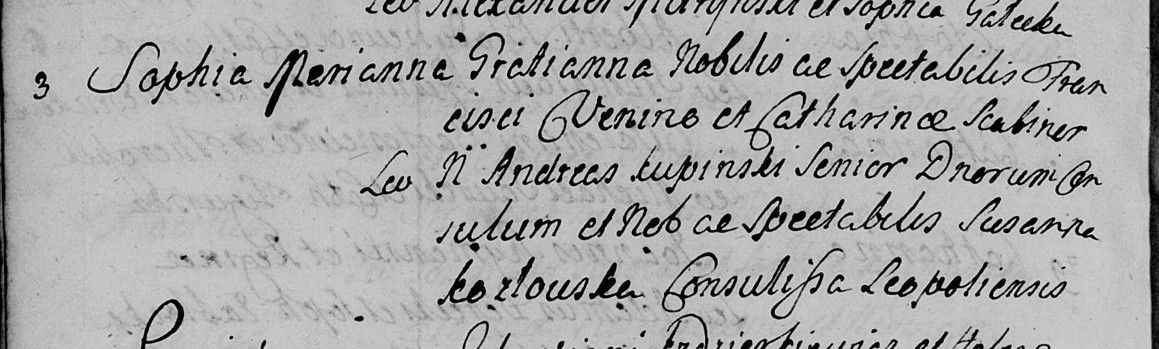 Leo Alexander et Sophia Gałecka
3 Sophia Marianna Gratianna Nobilis ac Spectabilis Fran
cisci Venino et Catharinæ Scabiner
Leo N Andreas Kupinski Senior Dnorum Con
sulum et Nob ac Spectabilis Susanna
Kozłouska Consulissa Leopoliensis
et